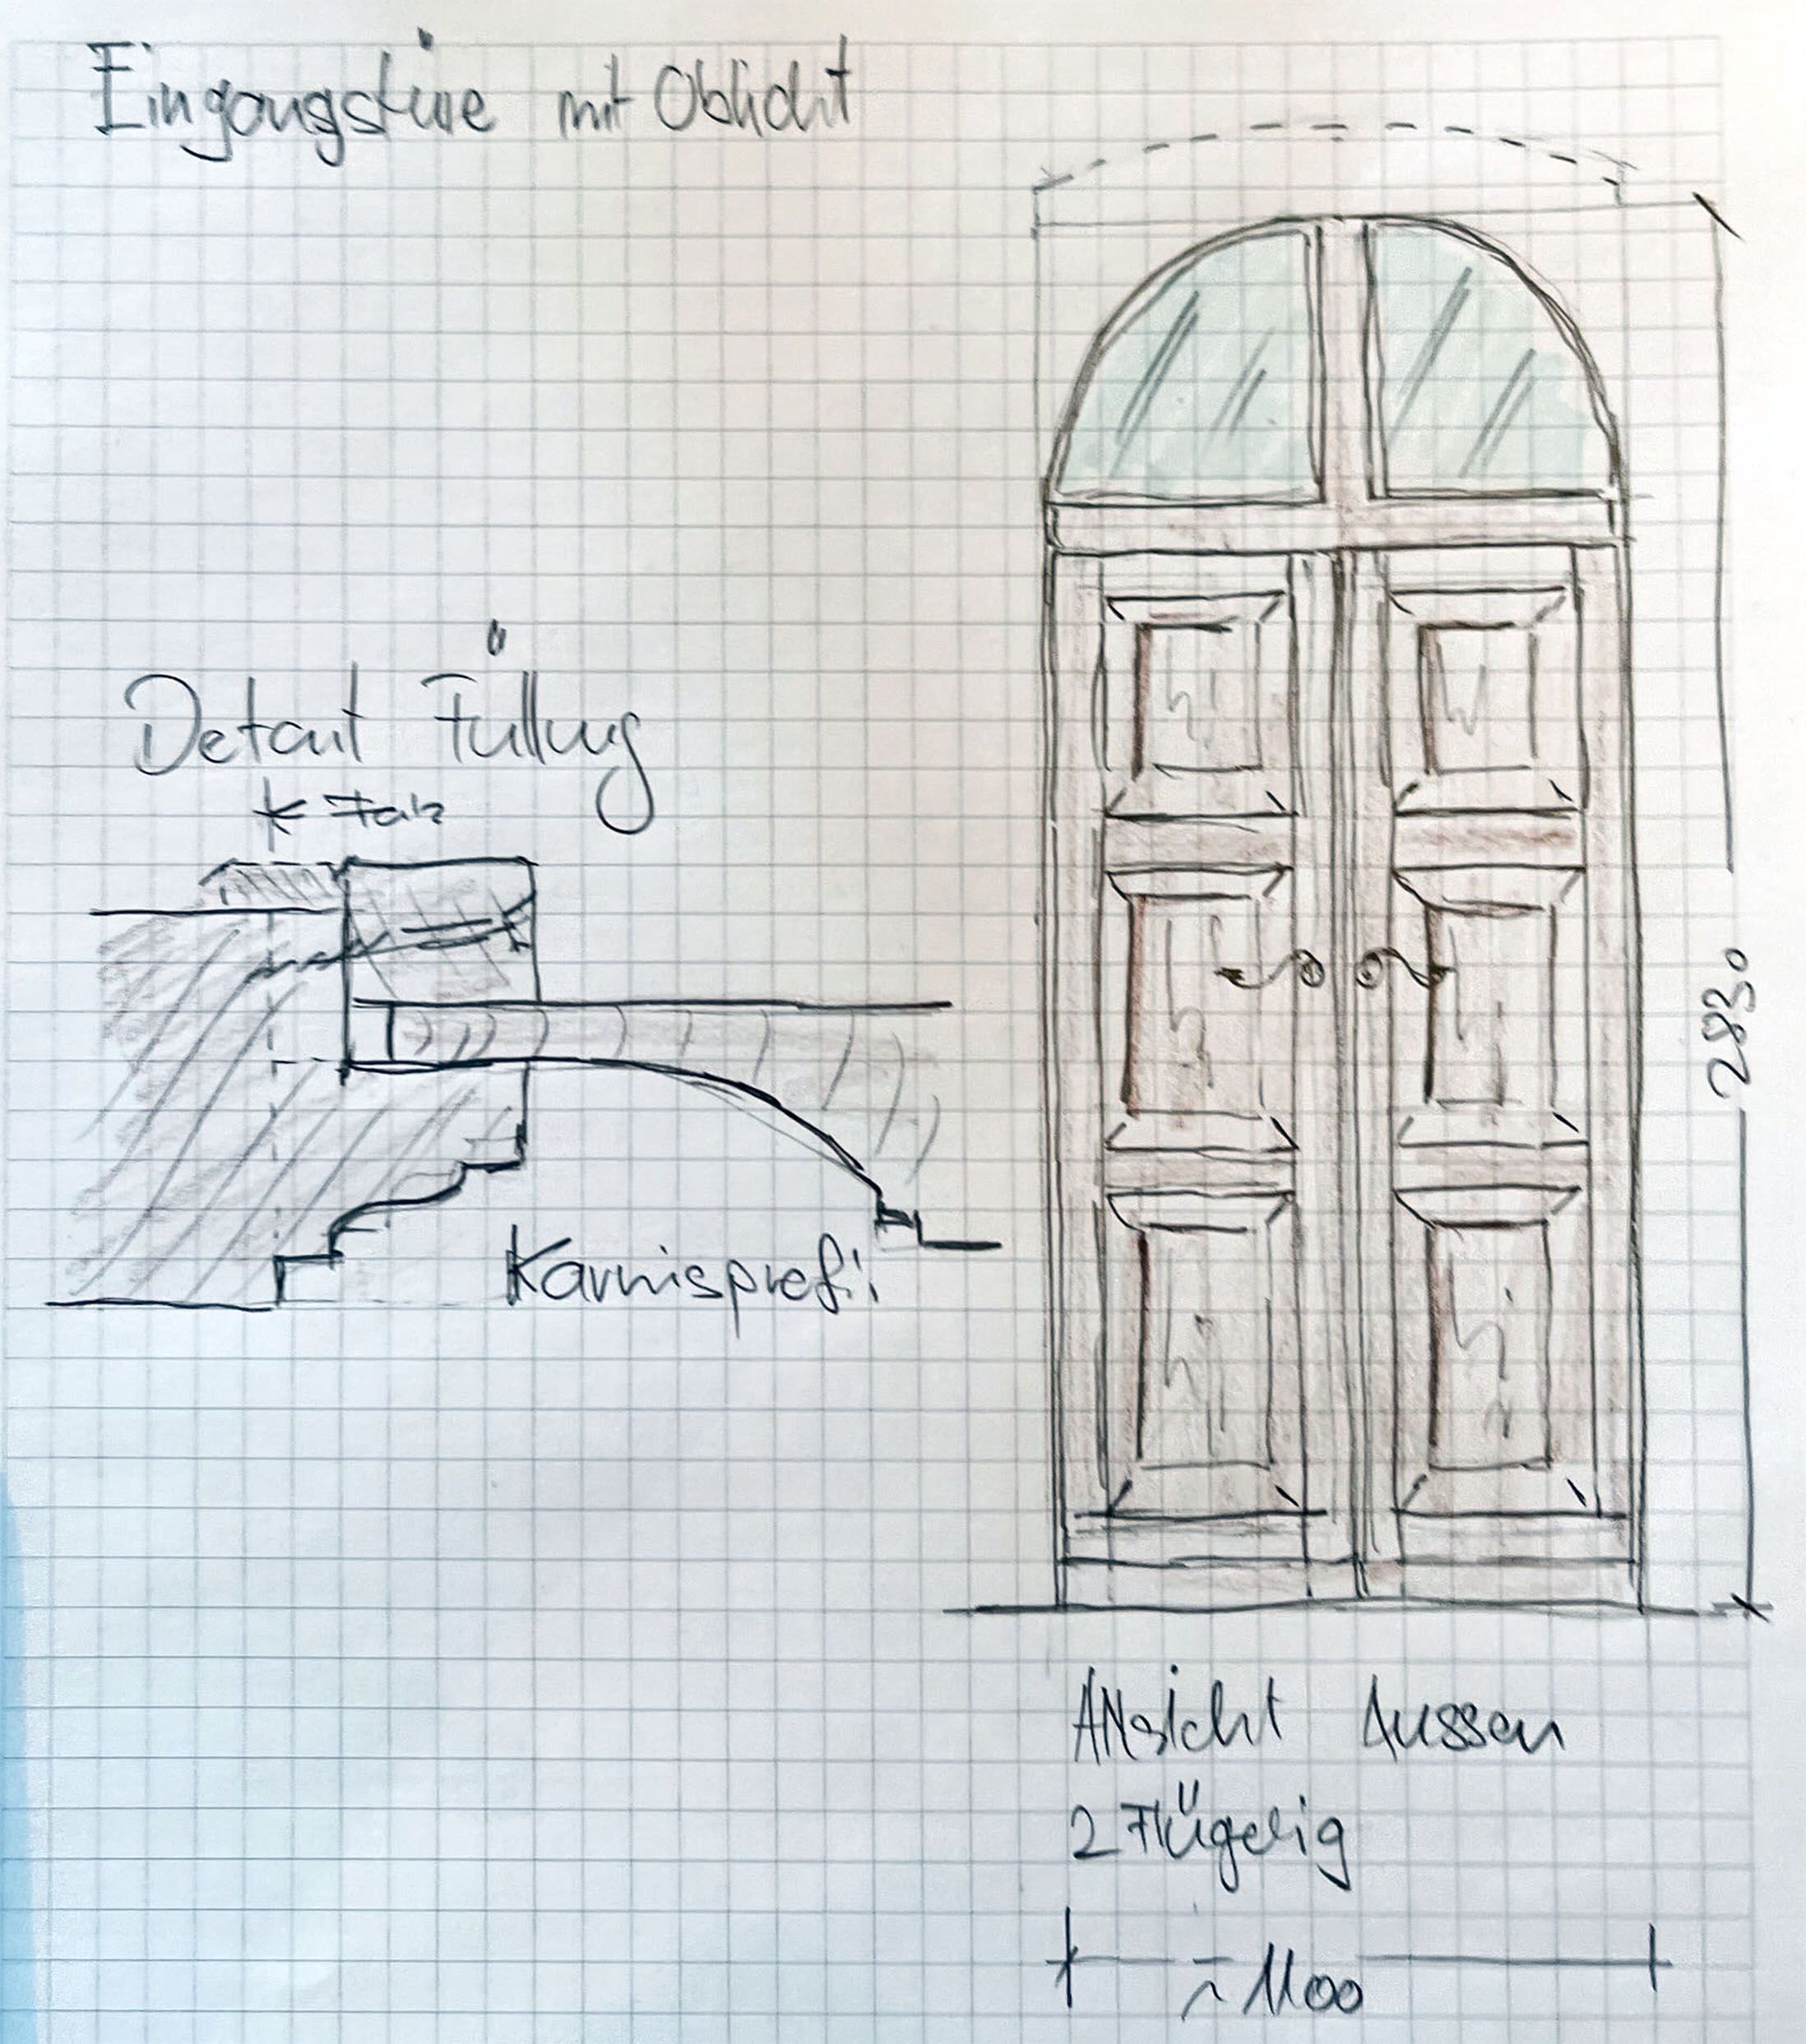 Eingangstüre mit Oblicht
Detail Füllung
Falz
Karnisprofil
2830
Ansicht Aussen
2 Flügelig
~ 1100